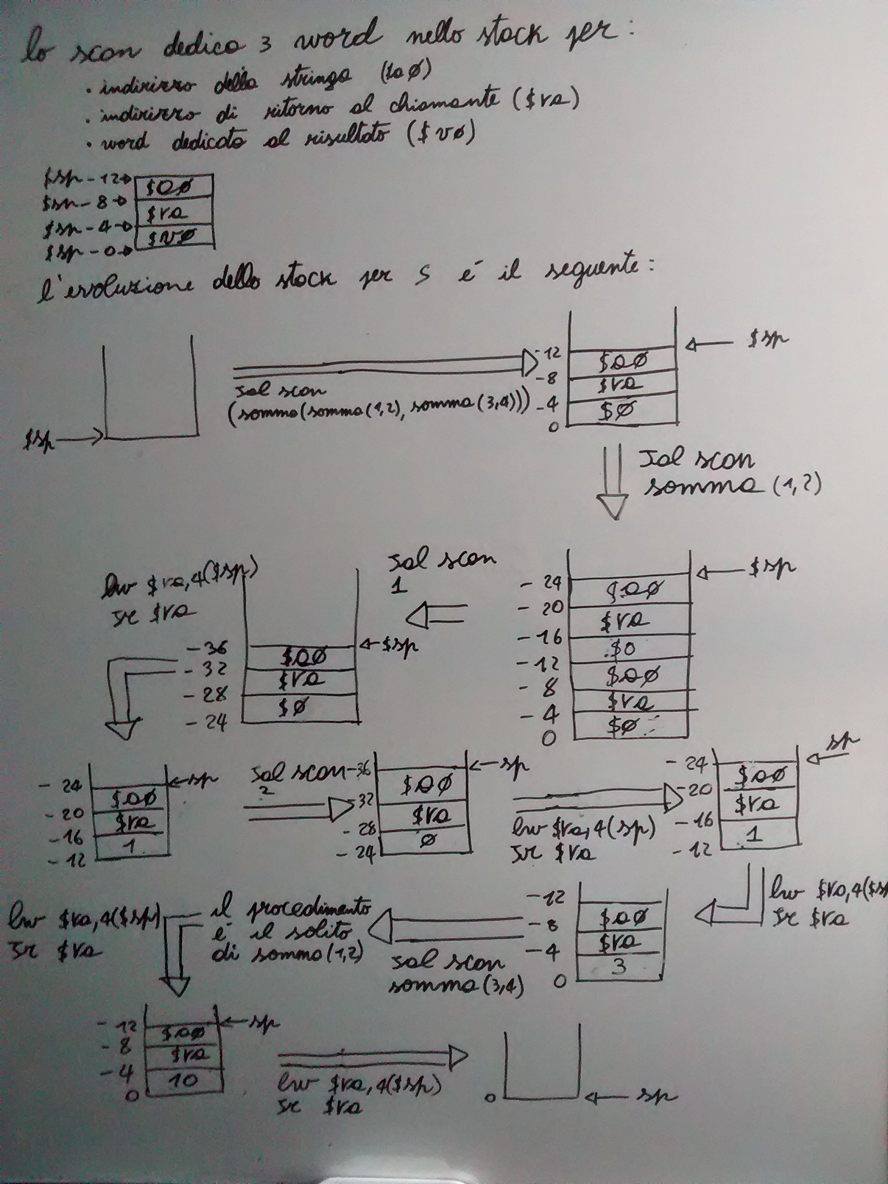 lo scan dedica 3 word nello stack per:
• indirizzo della stringa ($a0)
• indirizzo di ritorno al chiamante ($ra)
• word dedicata al risultato ($v0)
$sp - 12→ $a0
$sp - 8→ $ra
$sp - 4→ $v0
$sp - 0→
l'evoluzione dello stack per S é il seguente:
$sp
Jal scan
(somma(somma(1,2), somma(3,4)))
-12 $a0 $sp
-8 $ra
-4 $0
0
Jal scan
somma (1,2)
lw $ra,4($sp)
Jr $ra
-36 $a0 $sp
-32 $ra
-28 $0
-24
Jal scan
1
-24 $a0 $sp
-20 $ra
-16 $0
-12 $a0
-8 $ra
-4 $0
0
-24 $a0 sp
-20 $ra
-16 1
-12
Jal scan
2
-36 $a0 sp
-32 $ra
-28 0
-24
lw $ra,4(sp)
Jr $ra
-24 $a0 sp
-20 $ra
-16 1
-12
lw $ra,4($s
Jr $ra
-12 $a0
-8 $ra
-4 3
0
Jal scan
somma(3,4)
il procedimento
é il solito
di somma(1,2)
lw $ra,4($sp)
Jr $ra
-12 $a0 sp
-8 $ra
-4 10
0
lw $ra,4($sp)
Jr $ra
0 sp